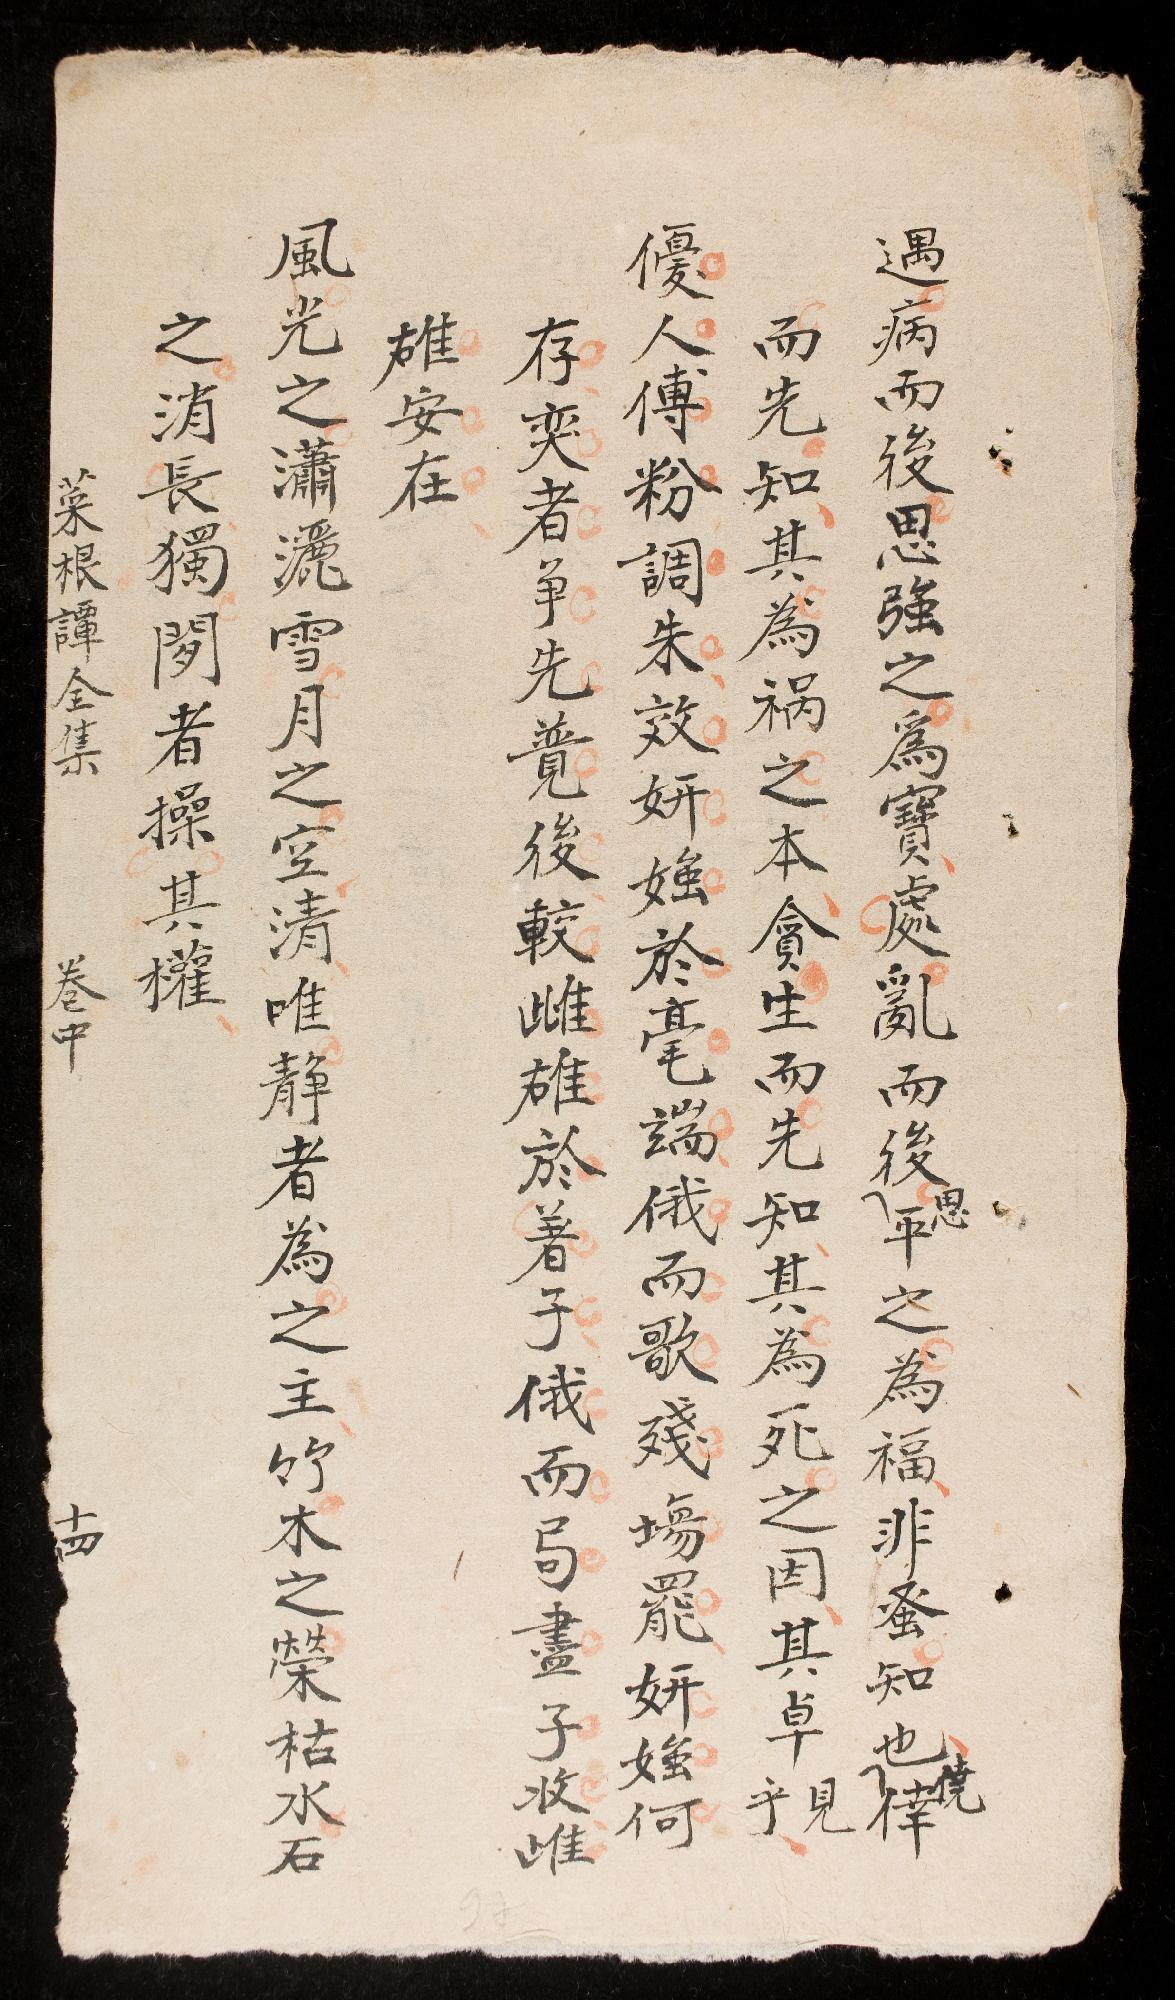 遇病而後思強之爲寶處亂而後思平之為福非蚤知也僥倖
而先知其為禍之本貪生而先知其為死之因其卓見乎
優人傅粉調朱效妍媸於毫端俄而歌殘場罷妍媸何
存奕者争先競後較雌雄於着子俄而局盡子收雌
雄安在
風光之瀟灑雪月之空清唯静者為之主竹木之榮枯水石
之消長獨閑者操其權
菜根譚全集 卷中 十四